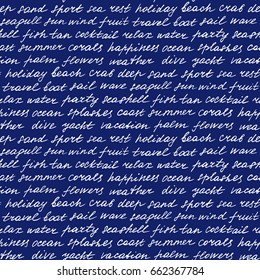 ep sand short sea rest holiday beach crab deep
seagull sun wind fruit travel boat sail wave
shell fish tan cocktail relax water party
coast summer corals happiness ocean splashes
palm flowers weather dive yacht vacat
holiday beach crab deep sand short sea rest
travel boat sail wave seagull sun wind fruit
relax water party seashell fish tan cocktail
piness ocean splashes coast summer corals
weather dive yacht vacation palm flowers
beach crab deep sand short sea rest holiday
travel boat sail wave seagull sun wind fruit
shell fish tan cocktail relax water party
coast summer corals happiness ocean splashes
ion palm flowers weather dive yacht vacat
holiday beach crab deep sand short sea rest
travel boat sail wave seagull sun wind fruit
relax water party seashell fish tan cocktail
happiness ocean splashes coast summer corals
shutterstock.com · 662367784